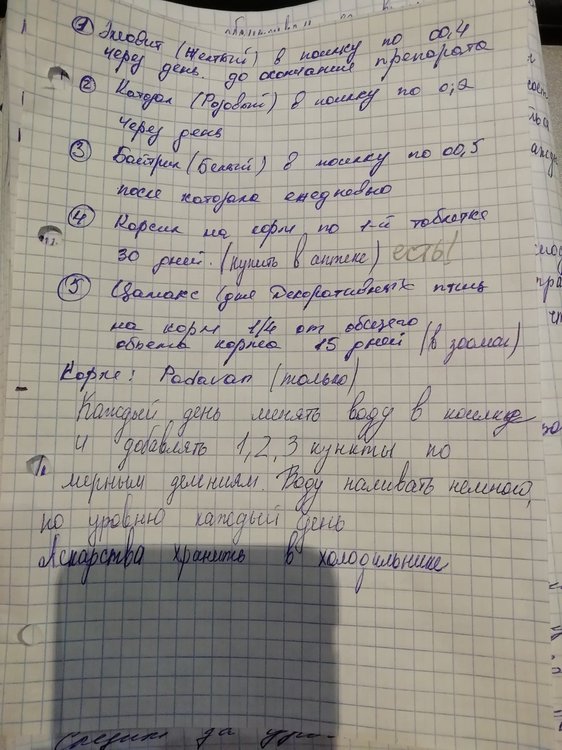 ① (Желтый) в поилку по 00,4
через день. до окончания препарата
② (Розовый) в поилку по 0,2
через день
③ (Белый) в поилку по 00,5
после ежедневно
④ Карсил на корм по 1-й таблетке
30 дней. (купить в аптеке) есть!
⑤ Цамакс (для декоративных птиц
на корм 1/4 от общего
объема корма 15 дней (в зоомаг)
Корм: Padavan (только)
Каждый день менять воду в поилке
и добавлять 1,2,3 пункты по
мерным делениям. Воду наливать немного,
по уровню каждый день
Лекарства хранить в холодильнике